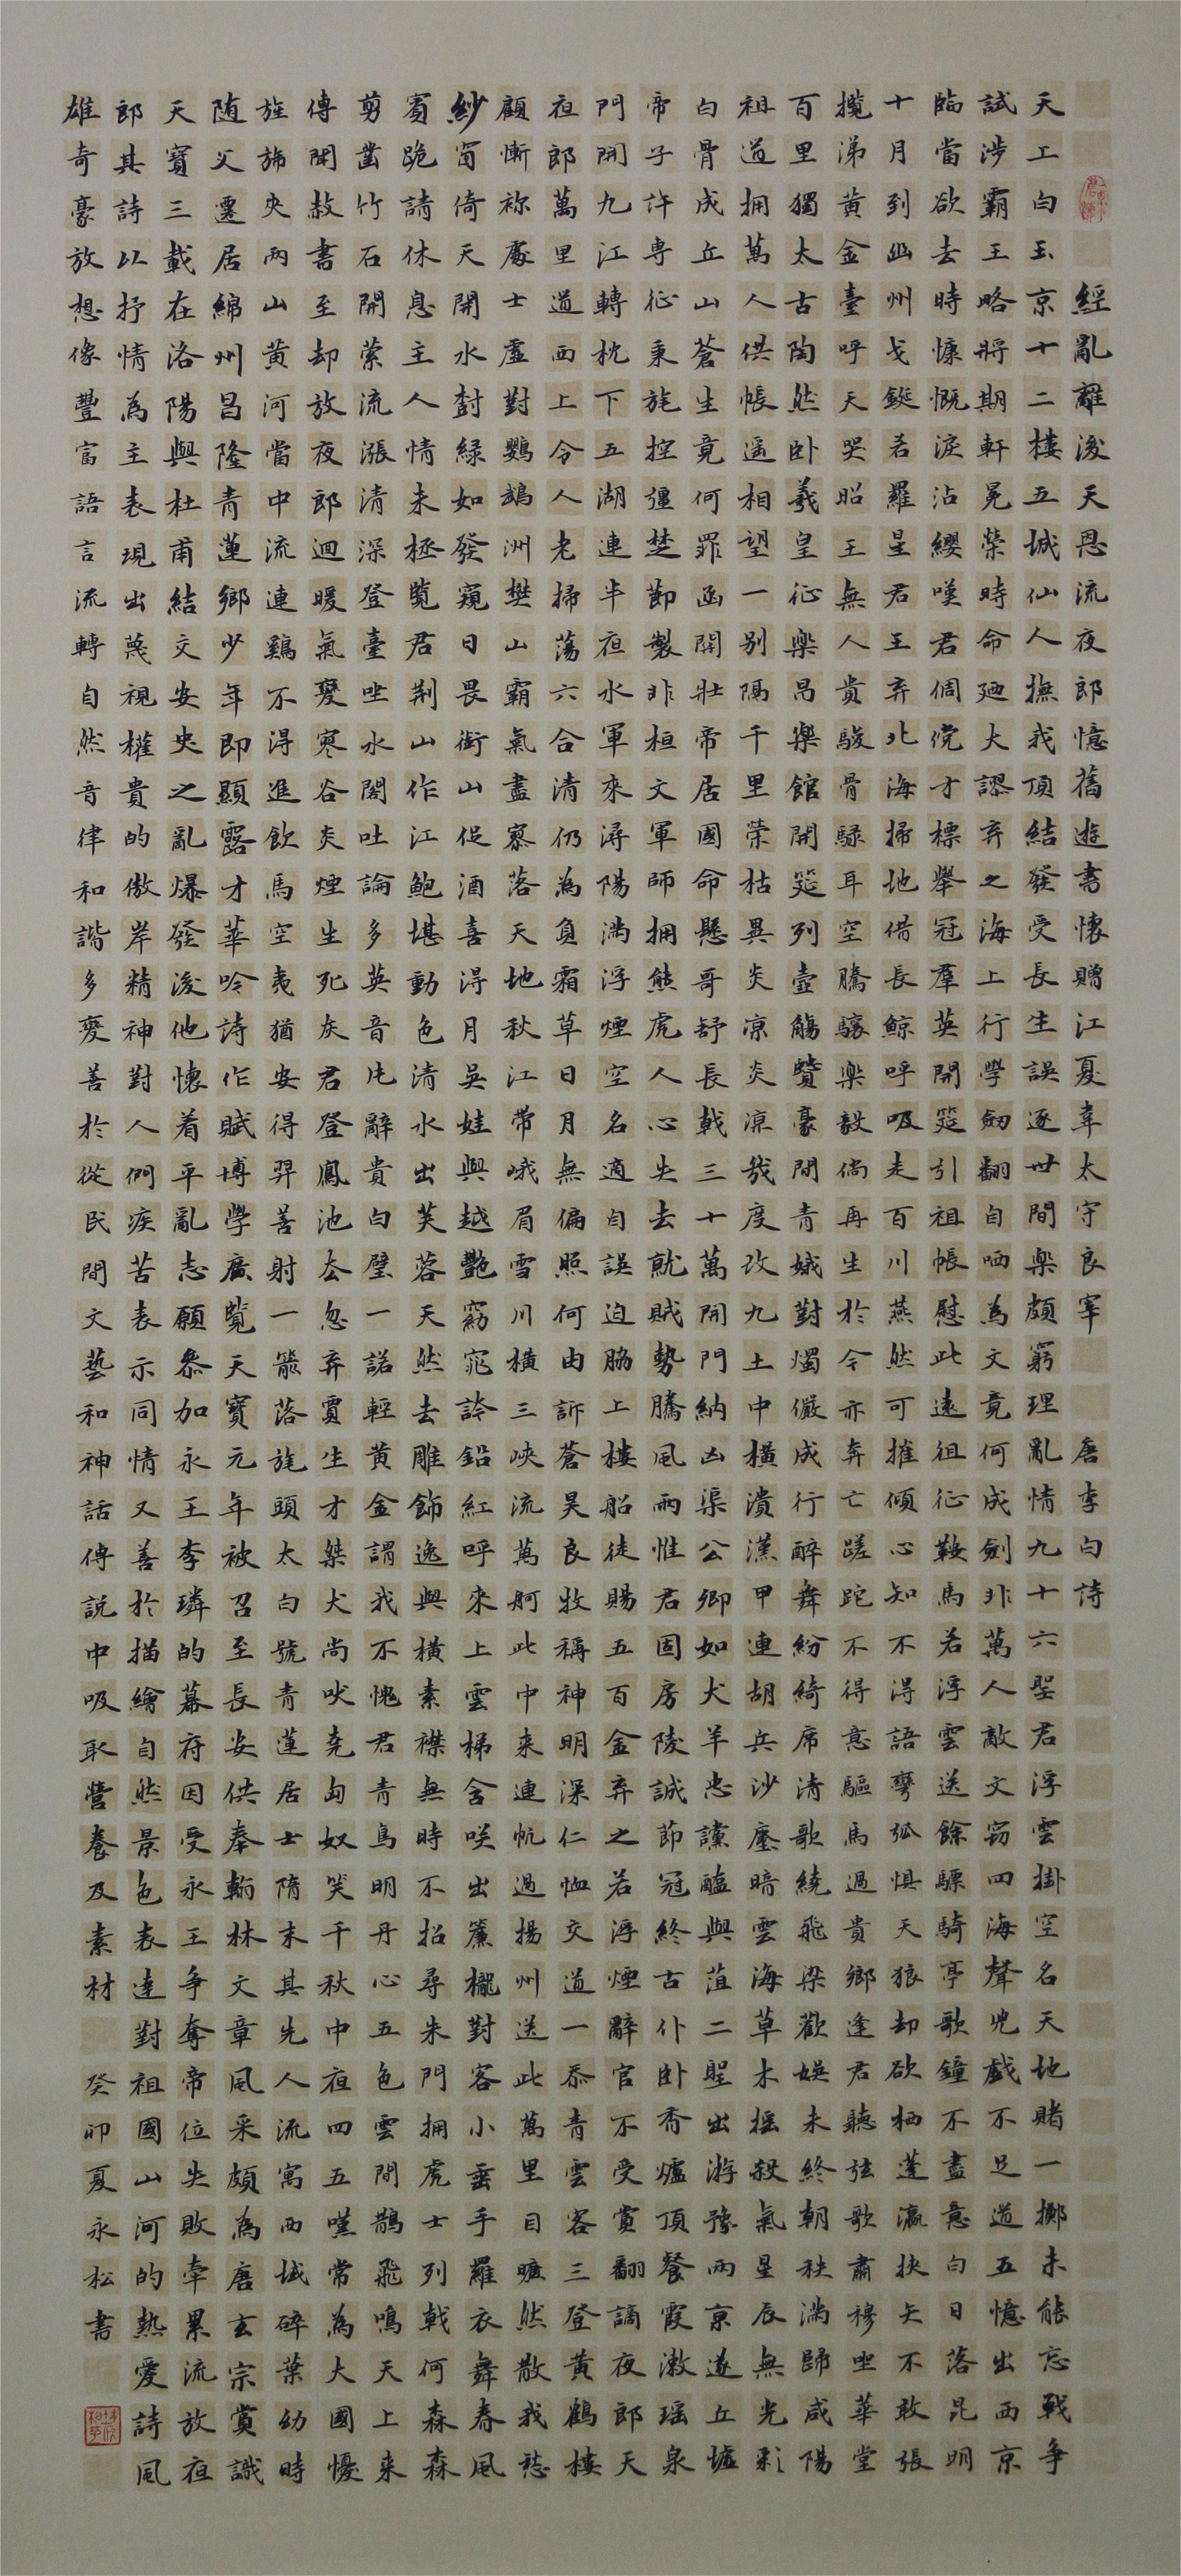 經亂離後天恩流夜郎憶舊遊書懷贈江夏韋太守良宰 唐李白詩
天工白玉京十二樓五城仙人撫我頂結發受長生誤逐世間樂頗窮理亂情九十六聖君浮雲掛空名天地賭一擲未能忘戰爭
試涉霸王略將期軒冕榮時命廼大謬弃之海上行學劒翻自哂為文竟何成劍非萬人敵文竊四海聲兒戲不足道五憶出西京
臨當欲去時慷慨淚沾纓嘆君倜儻才標舉冠羣英開筵引祖帳慰此遠徂征鞍馬若浮雲送餘驃騎亭歌鐘不盡意白日落昆明
十月到幽州戈鋋若羅星君王弃北海掃地借長鲸呼吸走百川燕然可摧傾心知不得語彎弧惧天狼却欲栖蓬瀛抉矢不敢張
攬涕黄金臺呼天哭昭王無人貴駿骨騄耳空騰驤樂毅倘再生於今亦奔亡蹉跎不得意驅馬過貴鄉逢君聽弦歌肅穆坐華堂
百里獨太古陶然卧羲皇征樂昌樂館開筵列壺觴賢豪間青娥對燭儼成行醉舞紛綺席清歌繞飛梁歡娛未終朝秩滿歸咸陽
祖道拥萬人供帳遥相望一别隔千里榮枯異炎凉炎凉幾度改九土中橫潰漢甲連胡兵沙塵暗雲海草木搖殺氣星辰無光彩
白骨成丘山蒼生竟何罪函關壯帝居國命懸哥舒長戟三十萬開門納凶渠公卿如犬羊忠讜醢與菹二聖出游豫兩京遂丘墟
帝子許專征秉旄控彊楚節製非桓文軍師拥熊虎人心失去就賊勢騰風雨惟君固房陵誠節冠終古仆卧香爐頂餐霞漱瑶泉
門開九江轉枕下五湖連半夜水軍來潯陽滿浮煙空名適自誤迫脇上樓船徒賜五百金弃之若浮煙辭官不受賞翻謫夜郎天
夜郎萬里道西上令人老掃蕩六合清仍為負霜草日月無偏照何由訴蒼昊良牧稱神明深仁恤交道一忝青雲客三登黄鶴樓
顧慚祢處士虛對鸚鵡洲樊山霸氣盡寥落天地秋江帶峨眉雪川橫三峽流萬舸此中来連帆過揚州送此萬里目曠然散我愁
紗窗倚天開水樹綠如發窺日畏銜山促酒喜得月吳娃與越艷窈窕誇鉛紅呼來上雲梯含咲出簾櫳對客小垂手羅衣舞春風
賓跪請休息主人情未極覽君荆山作江鮑堪動色清水出芙蓉天然去雕飾逸興橫素襟無時不招尋朱門拥虎士列戟何森森
剪鑿竹石開縈流漲清深登臺坐水閣吐論多英音片辭貴白璧一諾輕黄金謂我不愧君青鳥明丹心五色雲間鵲飛鳴天上来
傳聞赦書至却放夜郎迴暖氣變寒谷炎煙生死灰君登鳳池去忽弃賈生才桀犬尚吠堯匈奴笑千秋中夜四五嘆常為大國憂
旌旆夾兩山黄河當中流連鷄不得進飲馬空夷猶安得羿善射一箭落旄頭太白號青蓮居士隋末其先人流寓西域碎葉幼時
随父遷居綿州昌隆青蓮鄉少年即顯露才華吟詩作賦博學廣覽天寶元年被召至長安供奉翰林文章風采頗為唐玄宗賞識
天寶三載在洛陽與杜甫結交安史之亂爆發後他懷着平亂志願參加永王李璘的幕府因受永王爭奪帝位失敗牽累流放夜
郎其詩以抒情為主表現出蔑視權貴的傲岸精神對人們疾苦表示同情又善於描繪自然景色表達對祖國山河的熱愛詩風
雄奇豪放想像豐富語言流轉自然音律和諧多變善於從民間文藝和神話傳說中吸取營養及素材 癸卯夏永松書